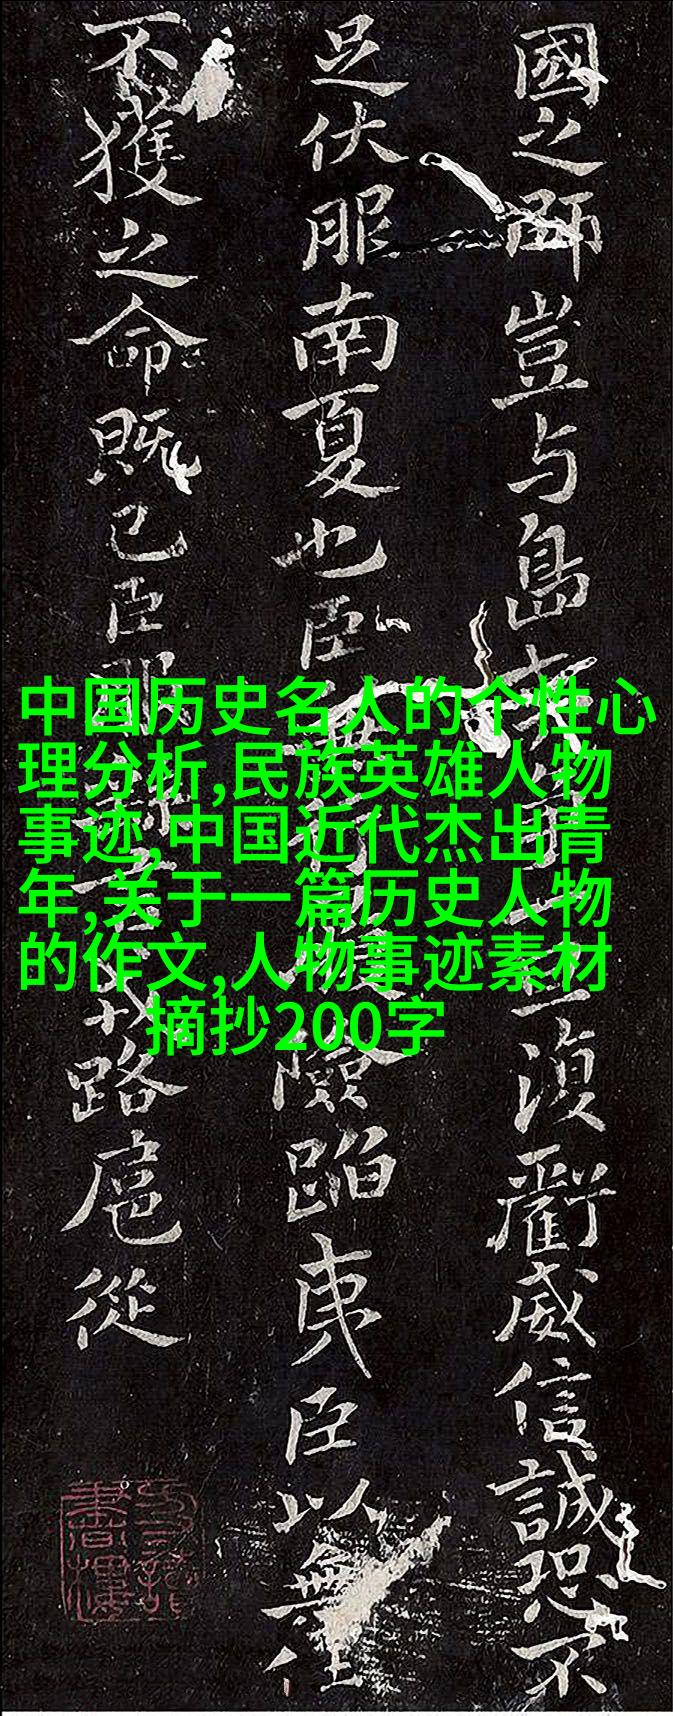 國之師豈与島夷
復爵威信誠恐不
足伏服南夏也臣
險蹈夷臣以無任
不獲之命既已臣
路扈從
中国历史名人的个性心
理分析,民族英雄人物
事迹,中国近代杰出青
年,关于一篇历史人物
的作文,人物事迹素材
摘抄200字